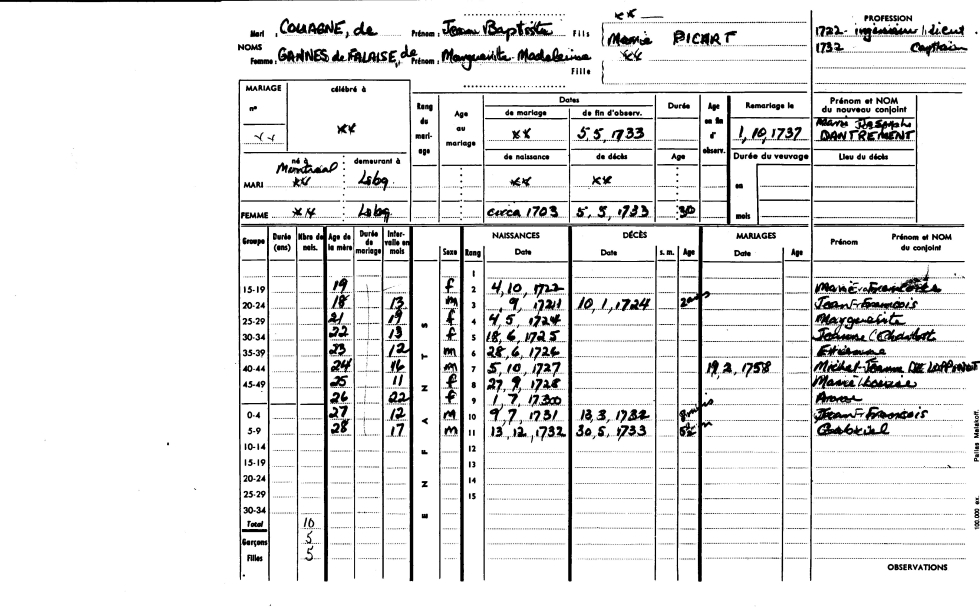 Mari : COUAGNE, de Prénom : Jean Baptiste Fils { xx — Marie PICART
NOMS
Femme : GANNES de FALAISE, de Prénom : Marguerite Madeleine Fille { xx
PROFESSION
1722 - ingénieur / lieut.
1732 Capitain
MARIAGE célébré à
n° xx xx
Rang du mariage Age au mariage Dates Durée Age en fin d'observ. Remariage le Prénom et NOM du nouveau conjoint
de mariage de fin d'observ.
xx 5, 5, 1733 1, 10, 1737 Marie Josephe DANTREMENT
né à demeurant à de naissance de décès Age Durée du veuvage Lieu du décès
MARI Montréal xx Lsbg xx xx en
FEMME xx Lsbg circa 1703 5, 5, 1733 30 mois
Groupe Durée (ans) Nbre de nais. Age de la mère Durée de mariage Intervalle en mois ENFANTS Sexe Rang NAISSANCES Date DÉCÈS Date s. m. Age MARIAGES Date Age Prénom Prénom et NOM du conjoint
1
15-19 19 f 2 4, 10, 1722
20-24 18 13 m 3 , 9, 1721 10, 1, 1724 2 ans Jean-François
25-29 21 19 f 4 4, 5, 1724 Marguerite
30-34 22 13 f 5 18, 6, 1725 Jeanne Charlott
35-39 23 12 m 6 28, 6, 1726 Etienne
40-44 24 16 m 7 5, 10, 1727 19, 2, 1758 Michel-Jeanne DE LOPPINOT
45-49 25 11 f 8 27, 9, 1728 Marie Louise
26 22 f 9 1, 7, 1730 Anne
0-4 27 12 m 10 9, 7, 1731 13, 3, 1732 8 mois Jean-François
5-9 28 17 m 11 13, 12, 1732 30, 5, 1733 5½ m Gabriel
10-14 12
15-19 13
20-24 14
25-29 15
30-34
Total 10
Garçons 5
Filles 5
OBSERVATIONS
100.000 ex.